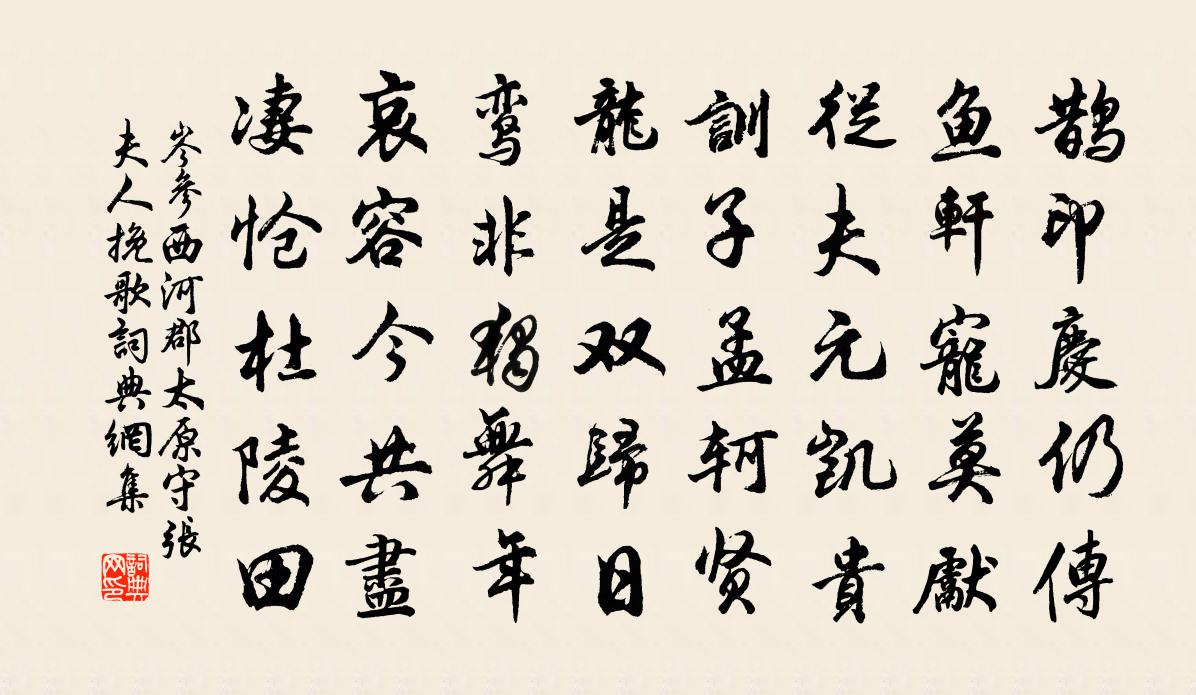 鹊印慶仍傳
鱼軒寵莫獻
從夫元凱貴
訓子孟軻贤
龍是双歸日
鸾非獨舞年
哀容今共盡
凄愴杜陵田
岑參西河郡太原守張
夫人挽歌詞典網集
詞典网印